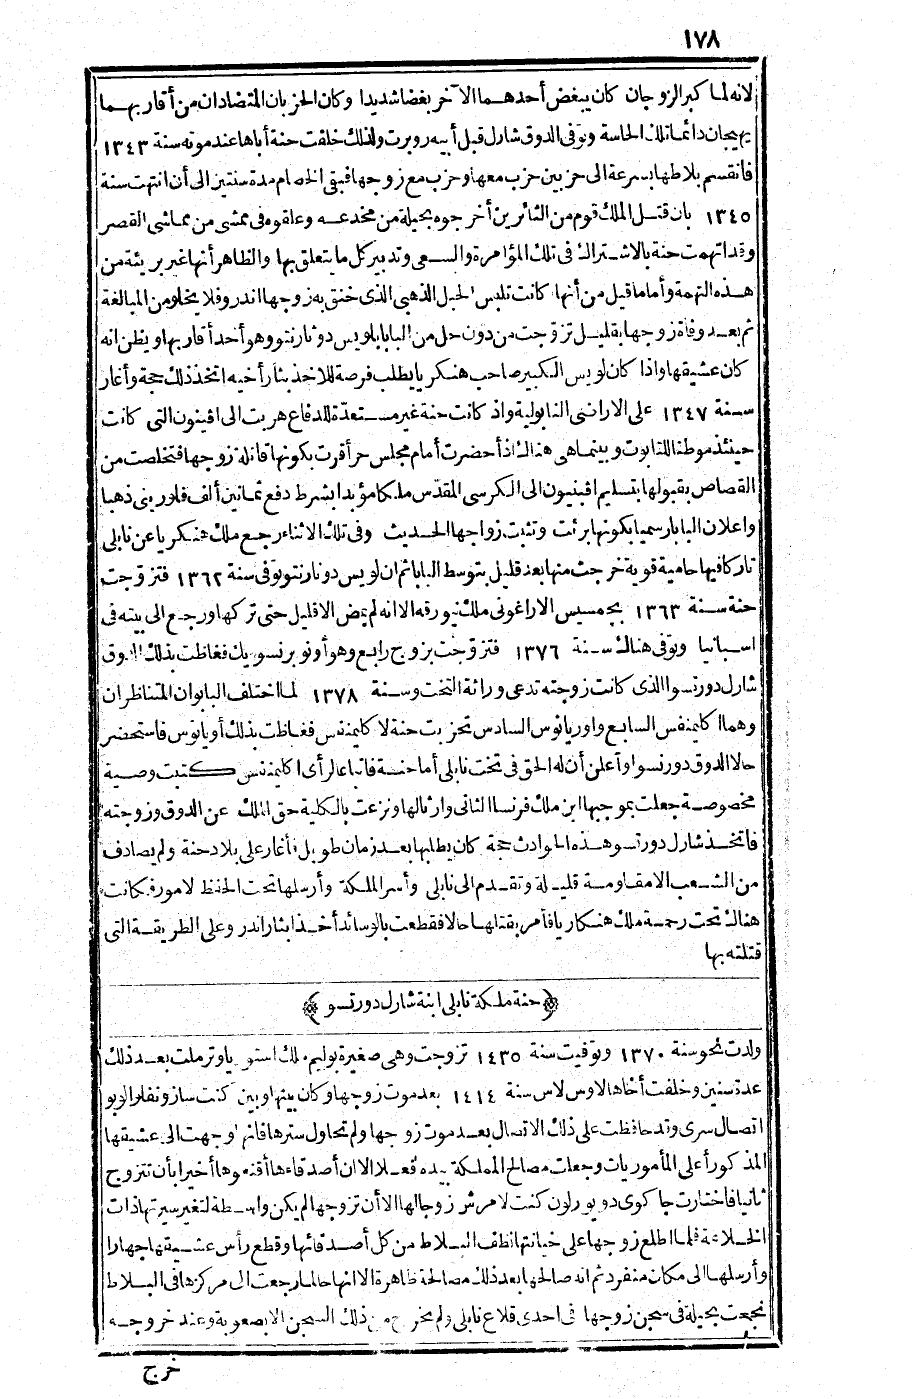 ١٧٨
لانه لما كبر الزوجان كان يبغض أحدهما الآخر بغضا شديدا وكان الحزبان المتضادان من أقاربهما
يهيجان دائما تلك الحاسة وتوفى الدوق شارل قبل أبيه روبرت ولذلك خلفت حنة أباها عند موته سنة ١٣٤٣
فانقسم بلاطها بسرعة الى حزبين حزب معها وحزب مع زوجها فبقي الخصام مدة سنتين الى أن انتهت سنة
١٣٤٥ بان قتل الملك قوم من الثائرين أخرجوه بحيلة من مخدعه وعلقوه في ممشى من مماشي القصر
وقد اتهمت حنة بالاشتراك في تلك المؤامرة والسعي وتدبير كل ما يتعلق بها والظاهر أنها غير بريئة من
هذه التهمة وأما ما قيل من أنها كانت تلبس الحبل الذهبي الذي خنق به زوجها اندرو فلا يخلو من المبالغة
ثم بعد وفاة زوجها بقليل تزوجت من دون حل من البابا بلويس دوتارنتو وهو أحد أقاربها ويظن انه
كان عشيقها واذا كان لويس الكبير صاحب هنكريا يطلب فرصة للاخذ بثار أخيه اتخذ ذلك حجة وأغار
سنة ١٣٤٧ على الاراضي النابولية واذ كانت حنة غير مستعدة للدفاع هربت الى افينون التي كانت
حينئذ موطنا للبابوت وبينما هي هناك اذ أحضرت أمام مجلس حر أقرت بكونها قاتلة زوجها فتخلصت من
القصاص بقبولها بتسليم افينيون الى الكرسي المقدس ملكا مؤبدا بشرط دفع ثمانين ألف فلوريني ذهبا
واعلان البابا رسميا بكونها برئت وتثبت زواجها الحديث وفي تلك الاثناء رجع ملك هنكريا عن نابلي
تاركا فيها حامية قوية خرجت منها بعد قليل بتوسط البابا ثم ان لويس دوتارنتو توفى سنة ١٣٦٢ فتزوجت
حنة سنة ١٣٦٣ بجمسيس الاراغوني ملك نيورقه الا انه لم يمض الا قليل حتى تركها ورجع الى بيته في
اسبانيا وتوفى هناك سنة ١٣٧٦ فتزوجت بزوج رابع وهو أوتو برنسويك فغاظت بذلك الدوق
شارل دورتسو الذي كانت زوجته تدعى وراثة التخت وسنة ١٣٧٨ لما اختلف البابوان المتناظران
وهما اكليمنضس السابع واوربانوس السادس تحزبت حنة لاكليمنضس فغاظت بذلك أوربانوس فاستحضر
حالا الدوق دورتسو وأعلن أن له الحق في تخت نابلي أما حنة فاتباعا لرأي اكليمنضس كتبت وصية
مخصوصة جعلت بموجبها ابن ملك فرنسا الثاني وارثا لها ونزعت بالكلية حق الملك عن الدوق وزوجته
فاتخذ شارل دورتسو هذه الحوادث حجة كان يطلبها بعد زمان طويل فأغار على بلاد حنة ولم يصادف
من الشعب الا مقاومة قليلة وتقدم الى نابلي وأسر الملكة وأرسلها تحت الحفظ لامورو فكانت
هناك تحت رحمة ملك هنكاريا فأمر بقتلها حالا فقطعت بالوسائد أخذا بثار اندرو على الطريقة التي
قتلته بها
﴿حنة ملكة نابلي ابنة شارل دورتسو﴾
ولدت نحو سنة ١٣٧٠ وتوفيت سنة ١٤٣٥ تزوجت وهي صغيرة بوليم ملك استوريا وترملت بعد ذلك
عدة سنين وخلفت أخاها لاوس لاس سنة ١٤١٤ بعد موت زوجها وكان بينها وبين كنت سازونفلو الوبو
اتصال سري وقد حافظت على ذلك الاتصال بعد موت زوجها ولم تحاول سترها فانها وجهت الى عشيقها
المذكور أعلى المأموريات وجعلت مصالح المملكة بيده فعلا الا ان أصدقاءها أقنعوها أخيرا بأن تتزوج
ثانيا فاختارت جاكوي دوبورلون كنت لامرش زوجا لها الا أن تزوجها لم يكن واسطة لتغير سيرتها ذات
الخلاعة فلما اطلع زوجها على خيانتها نظف البلاط من كل أصدقائها وقطع رأس عشيقها جهارا
وأرسلها الى مكان منفرد ثم انه صالحها بعد ذلك مصالحة ظاهرة الا انها حالما رجعت الى مركزها في البلاط
نجحت بحيلة في سجن زوجها في احدى قلاع نابلي ولم يخرج من ذلك السجن الا بصعوبة وعند خروجه
خرج